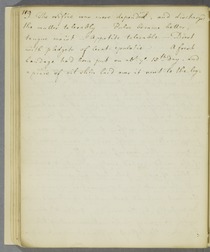 the orifice now more dependent, and discharg
the matter tolerably Pulse became better,
tongue moist Appetite tolerable Dress'd
with pledgets of A fresh
bandage had been put on ye 18th Day, and
a piece of oil skin laid over it next to the leg.